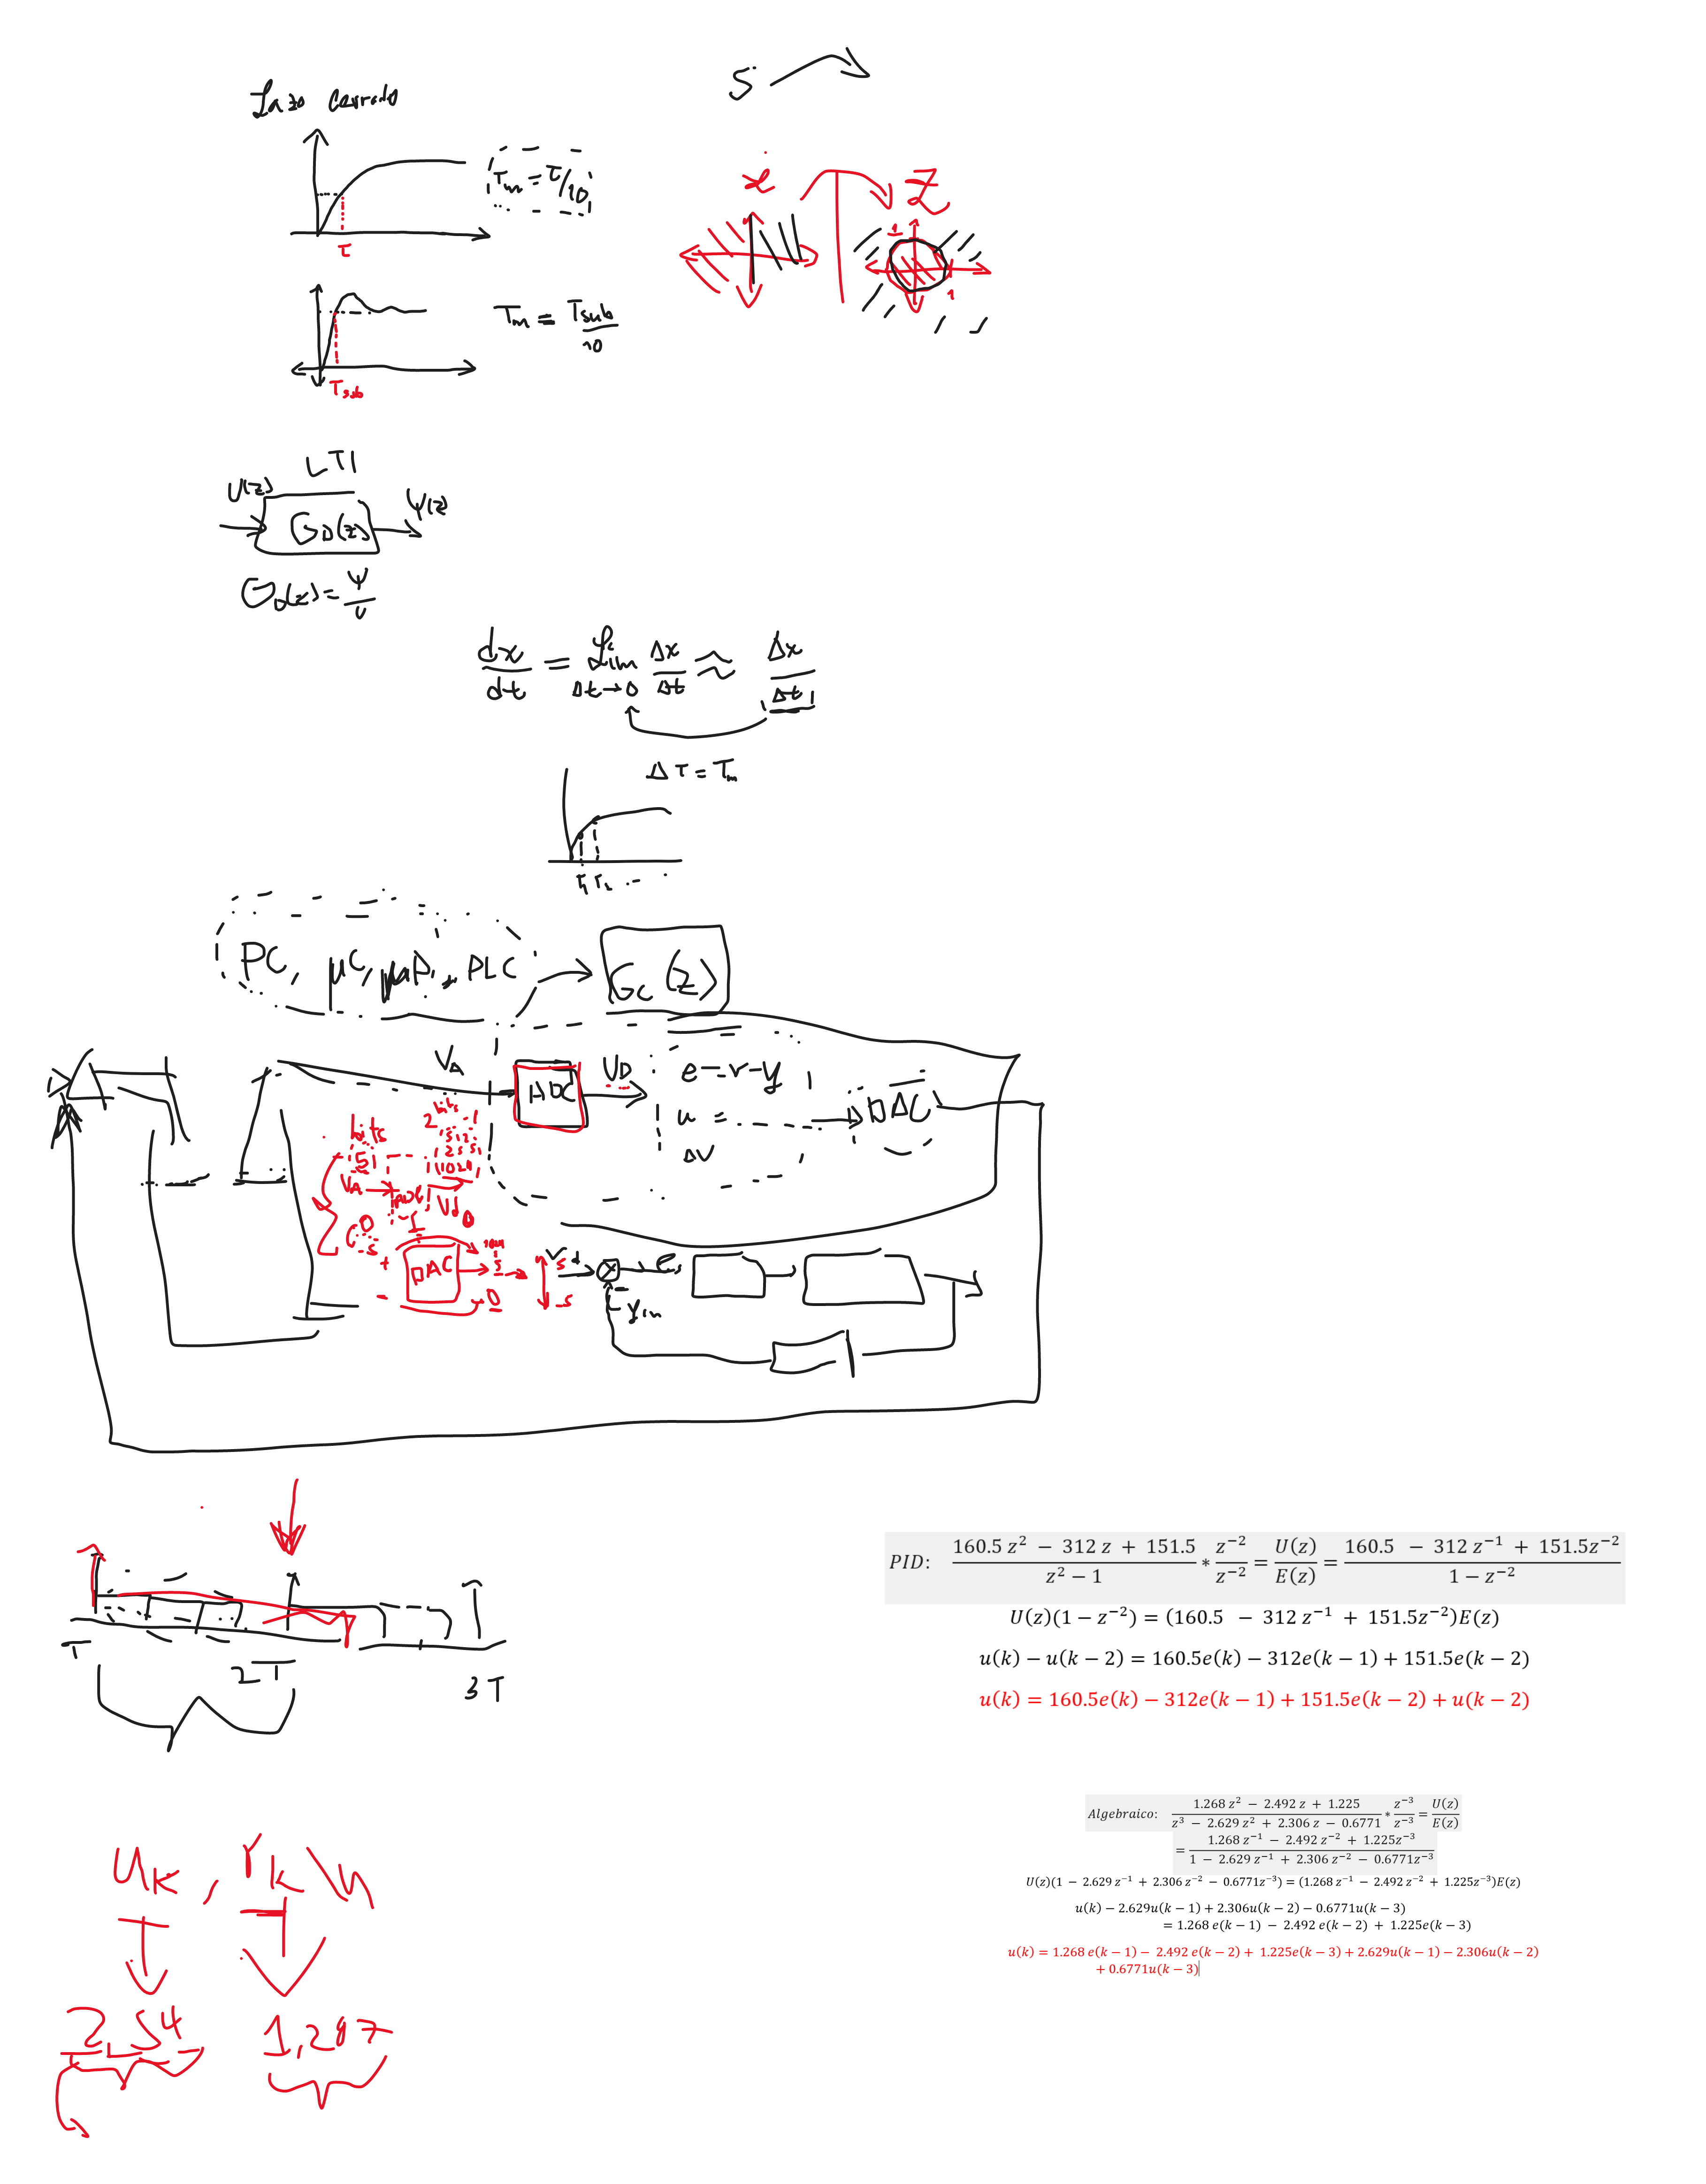 Lazo Cerrado
S
Tm = τ/10
τ
ℒ
Z
1
1
Tm = Tsub/10
Tsub
LTI
U(z)
GD(z)
Y(z)
GD(z) = Y/U
dx/dt = Lim Δt→0 Δx/Δt ≈ Δx/Δt
ΔT = Tm
PC, μC, μP, PLC
Gc(z)
VA
ADC
UD
e = r - y
u =
DAC
bits
51
VA
ADC
Vd
0
DAC
+
-
5
0
5
-5
e
T
2T
3T
PID: (160.5 z² − 312 z + 151.5)/(z² − 1) * z⁻²/z⁻² = U(z)/E(z) = (160.5 − 312 z⁻¹ + 151.5z⁻²)/(1 − z⁻²)
U(z)(1 − z⁻²) = (160.5 − 312 z⁻¹ + 151.5z⁻²)E(z)
u(k) − u(k − 2) = 160.5e(k) − 312e(k − 1) + 151.5e(k − 2)
u(k) = 160.5e(k) − 312e(k − 1) + 151.5e(k − 2) + u(k − 2)
Algebraico: (1.268 z² − 2.492 z + 1.225)/(z³ − 2.629 z² + 2.306 z − 0.6771) * z⁻³/z⁻³ = U(z)/E(z)
= (1.268 z⁻¹ − 2.492 z⁻² + 1.225z⁻³)/(1 − 2.629 z⁻¹ + 2.306 z⁻² − 0.6771z⁻³)
U(z)(1 − 2.629 z⁻¹ + 2.306 z⁻² − 0.6771z⁻³) = (1.268 z⁻¹ − 2.492 z⁻² + 1.225z⁻³)E(z)
u(k) − 2.629u(k − 1) + 2.306u(k − 2) − 0.6771u(k − 3)
= 1.268 e(k − 1) − 2.492 e(k − 2) + 1.225e(k − 3)
u(k) = 1.268 e(k − 1) − 2.492 e(k − 2) + 1.225e(k − 3) + 2.629u(k − 1) − 2.306u(k − 2)
+ 0.6771u(k − 3)
uk, rk
2,54
1,287